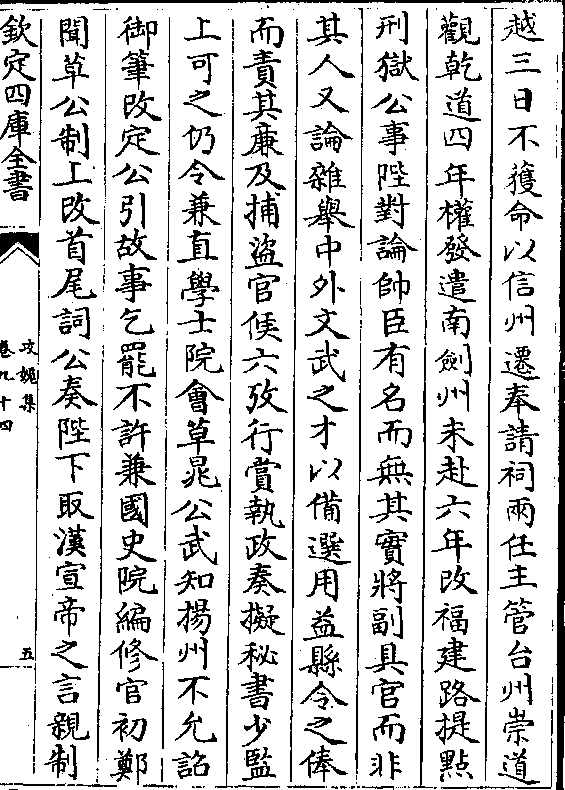 越三日不獲命以信州遷奉請祠兩任主管台州崇道
觀乾道四年權發遣南劍州未赴六年改福建路提點
刑獄公事陛對論帥臣有名而無其實將副具官而非
其人又論雜舉中外文武之才以備選用益縣令之俸
而責其廉及捕盜官俟六攷行賞執政奏擬秘書少監
上可之仍令兼直學士院會草晁公武知揚州不允詔
御筆改定公引故事乞罷不許兼國史院編修官初鄭
聞草公制上改首尾詞公奏陛下取漢宣帝之言親制
欽定四庫全書
攻媿集
卷九十四
五